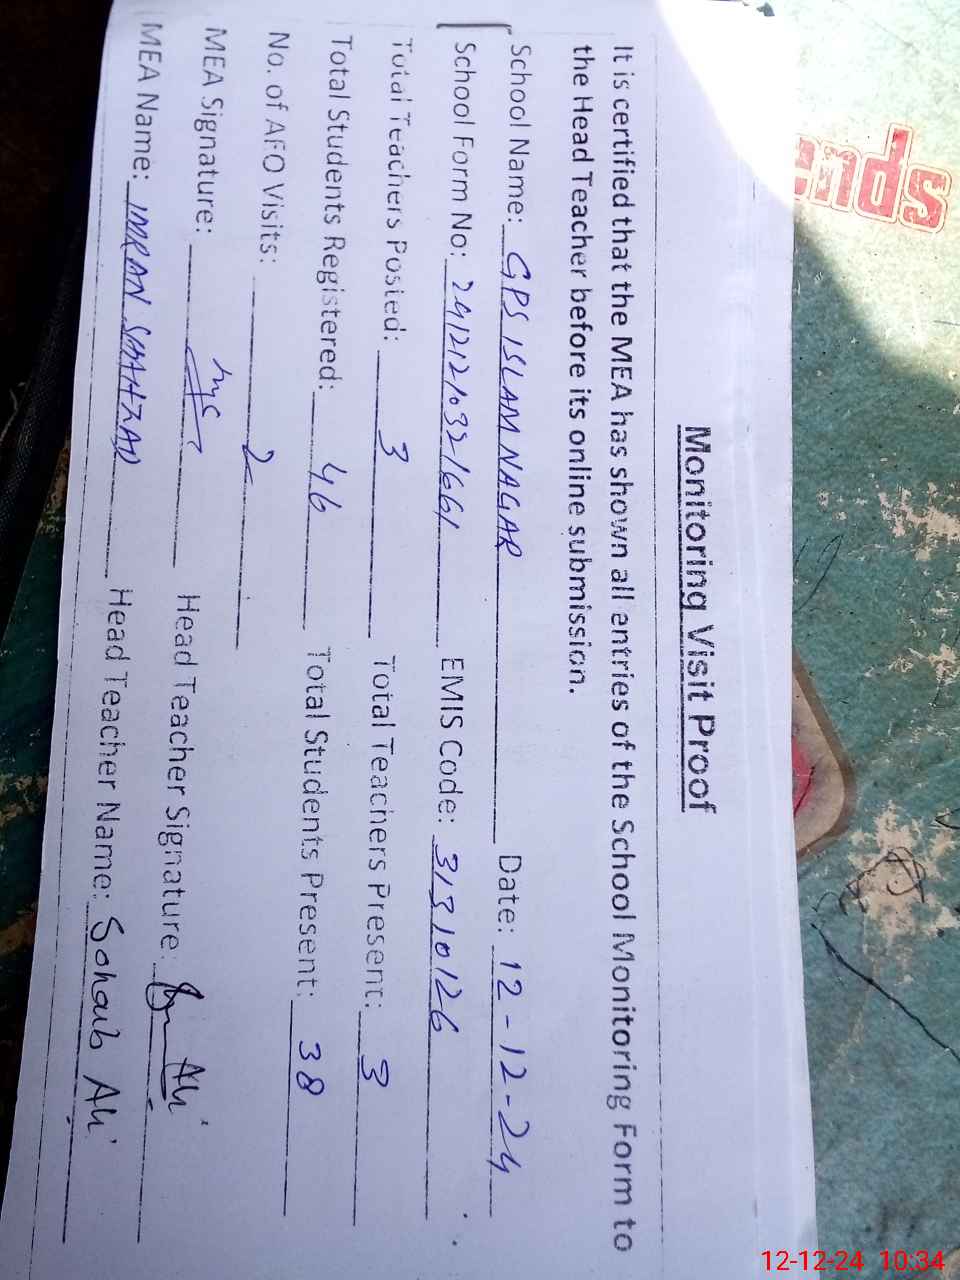 Monitoring Visit Proof
It is certified that the MEA has shown all entries of the School Monitoring Form to
the Head Teacher before its online submission.
School Name: GPS ISLAM NAGAR Date: 12-12-24
School Form No: 241212103321661 EMIS Code: 31310126
Total Teachers Posted: 3 Total Teachers Present: 3
Total Students Registered: 46 Total Students Present: 38
No. of AEO Visits: 2
MEA Signature: Head Teacher Signature: Ali
MEA Name: IMRAN SHAHZAD Head Teacher Name: Sohaib Ali
nds
12-12-24 10:34